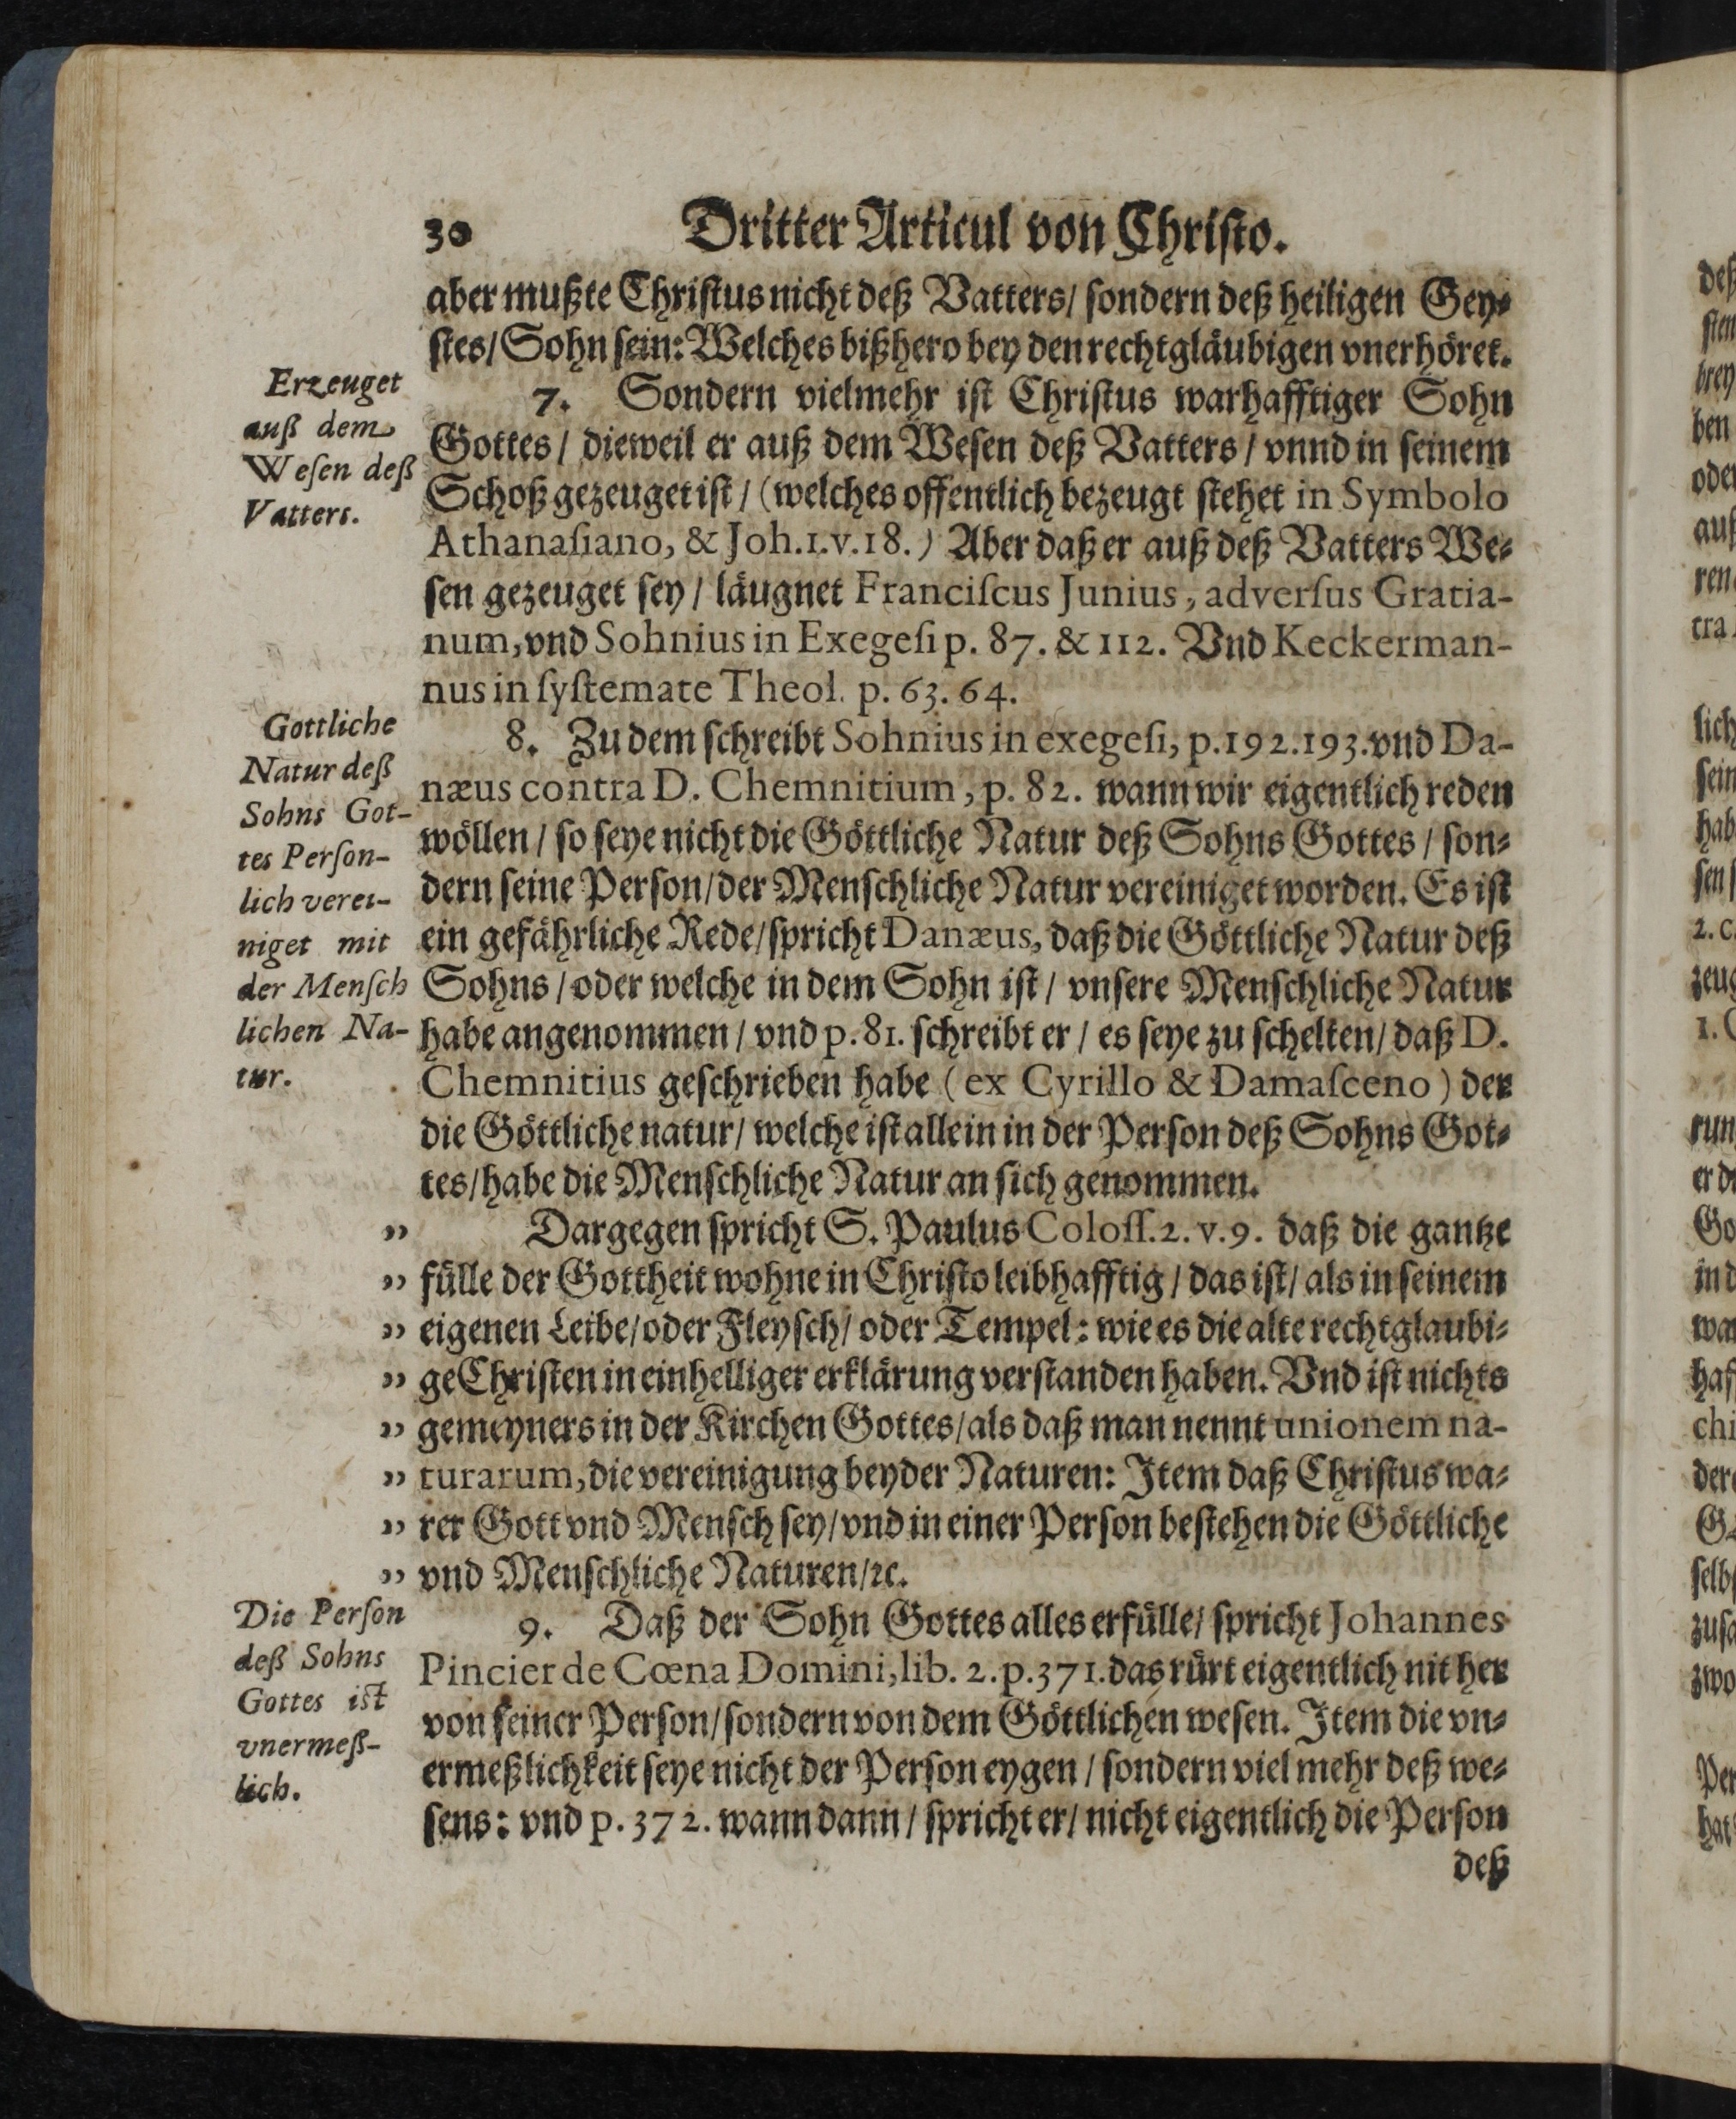 30 Dritter Articul von Christo.
aber mußte Christus nicht deß Vatters/ sondern deß heiligen Gey-
stes/ Sohn sein: Welches bißhero bey den rechtgläubigen vnerhöret.
Erzeuget
auß dem
Wesen deß
Vatters.
7. Sondern vielmehr ist Christus warhafftiger Sohn
Gottes/ dieweil er auß dem Wesen deß Vatters/ vnnd in seinem
Schoß gezeuget ist/ (welches offentlich bezeugt stehet in Symbolo
Athanasiano, & Joh.1.v.18.) Aber daß er auß deß Vatters We-
sen gezeuget sey/ läugnet Franciscus Junius, adversus Gratia-
num, vnd Sohnius in Exegesi p. 87. & 112. Vnd Keckerman-
nus in systemate Theol. p. 63. 64.
Gottliche
Natur deß
Sohns Got-
tes Person-
lich verei-
niget mit
der Mensch
lichen Na-
tur.
8. Zu dem schreibt Sohnius in exegesi, p.192.193. vnd Da-
næus contra D. Chemnitium, p. 82. wann wir eigentlich reden
wöllen/ so seye nicht die Göttliche Natur deß Sohns Gottes/ son-
dern seine Person/ der Menschliche Natur vereiniget worden. Es ist
ein gefährliche Rede/ spricht Danæus, daß die Göttliche Natur deß
Sohns/ oder welche in dem Sohn ist/ vnsere Menschliche Natur
habe angenommen/ vnd p. 81. schreibt er/ es seye zu schelten/ daß D.
Chemnitius geschrieben habe (ex Cyrillo & Damasceno) der
die Göttliche natur/ welche ist allein in der Person deß Sohns Got-
tes/ habe die Menschliche Natur an sich genommen.
„ Dargegen spricht S. Paulus Coloss.2. v.9. daß die gantze
„ fülle der Gottheit wohne in Christo leibhafftig/ das ist/ als in seinem
„ eigenen Leibe/ oder Fleysch/ oder Tempel: wie es die alte rechtglaubi-
„ ge Christen in einhelliger erklärung verstanden haben. Vnd ist nichts
„ gemeyners in der Kirchen Gottes/ als daß man nennt unionem na-
„ turarum, die vereinigung beyder Naturen: Item daß Christus wa-
„ rer Gott vnd Mensch sey/ vnd in einer Person bestehen die Göttliche
„ vnd Menschliche Naturen/ ꝛc.
Die Person
deß Sohns
Gottes ist
vnermeß-
lich.
9. Daß der Sohn Gottes alles erfülle/ spricht Johannes
Pincier de Cœna Domini, lib. 2. p.371. das rürt eigentlich nit her
von seiner Person/ sondern von dem Göttlichen wesen. Item die vn-
ermeßlichkeit seye nicht der Person eygen/ sondern viel mehr deß we-
sens: vnd p. 372. wann dann/ spricht er/ nicht eigentlich die Person
deß